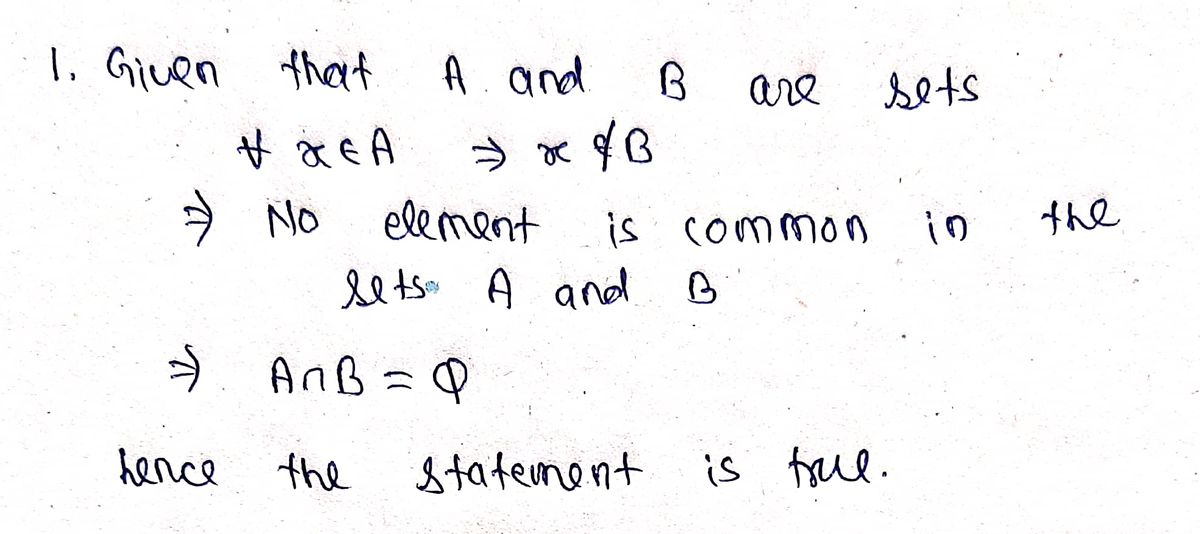 1. Given that A and B are sets
∀ x ∈ A ⇒ x ∉ B
⇒ No element is common in the
sets A and B
⇒ A∩B = Φ
hence the statement is true.